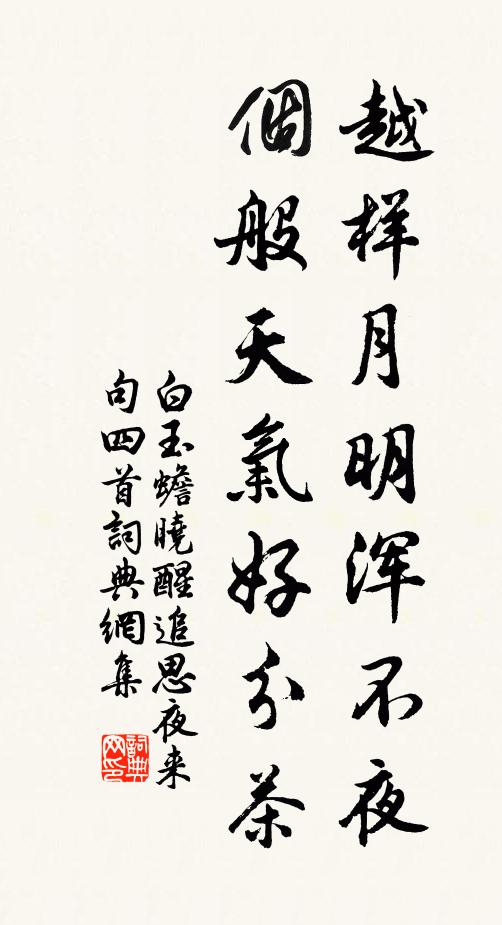 越样月明浑不夜
個般天氣好分茶
白玉蟾曉醒追思夜来
句四首詞典網集
詞典网印